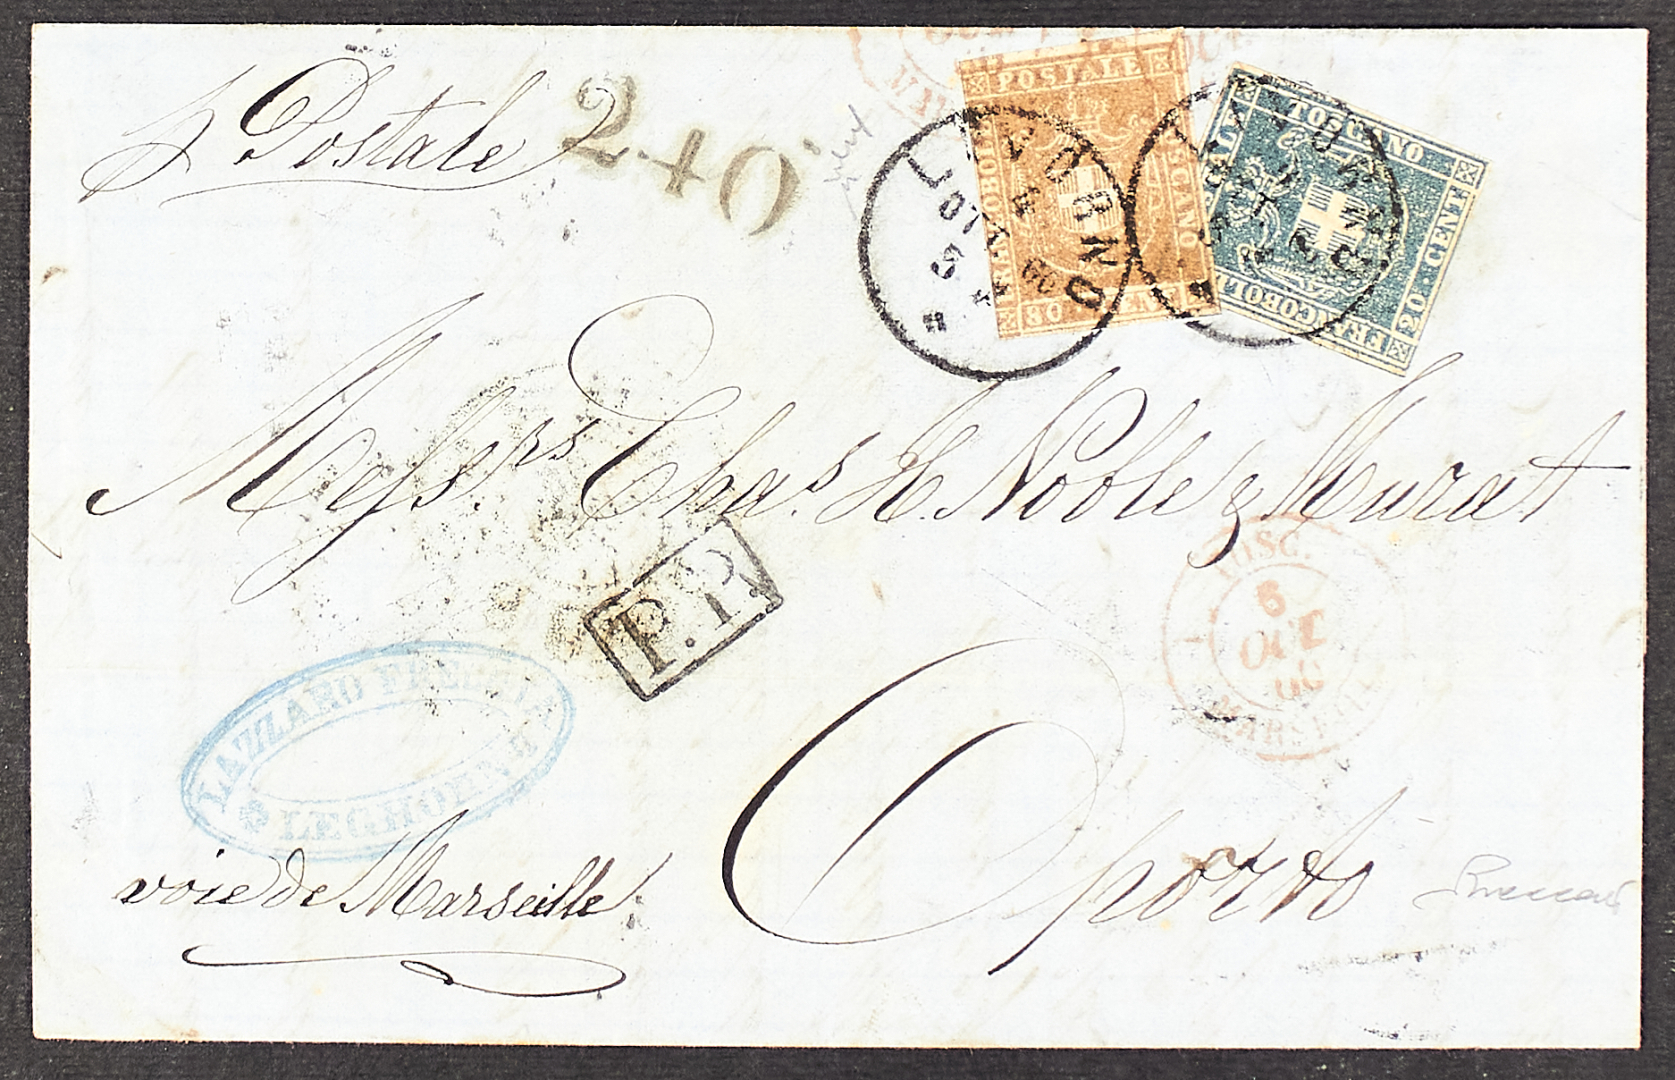 p Postale
240
POSTALE
TOSCANO
FRANCOBOLLO
80 CENT
TOSCANO
FRANCOBOLLO
20 CENT
LIVORNO
LIVORNO
Messrs Chas. H. Noble & Murat
P.P.
TOSC.
6
OCT
60
MARSEILLE
LAZZARO
LEGHORN
Oporto
voie de Marseille